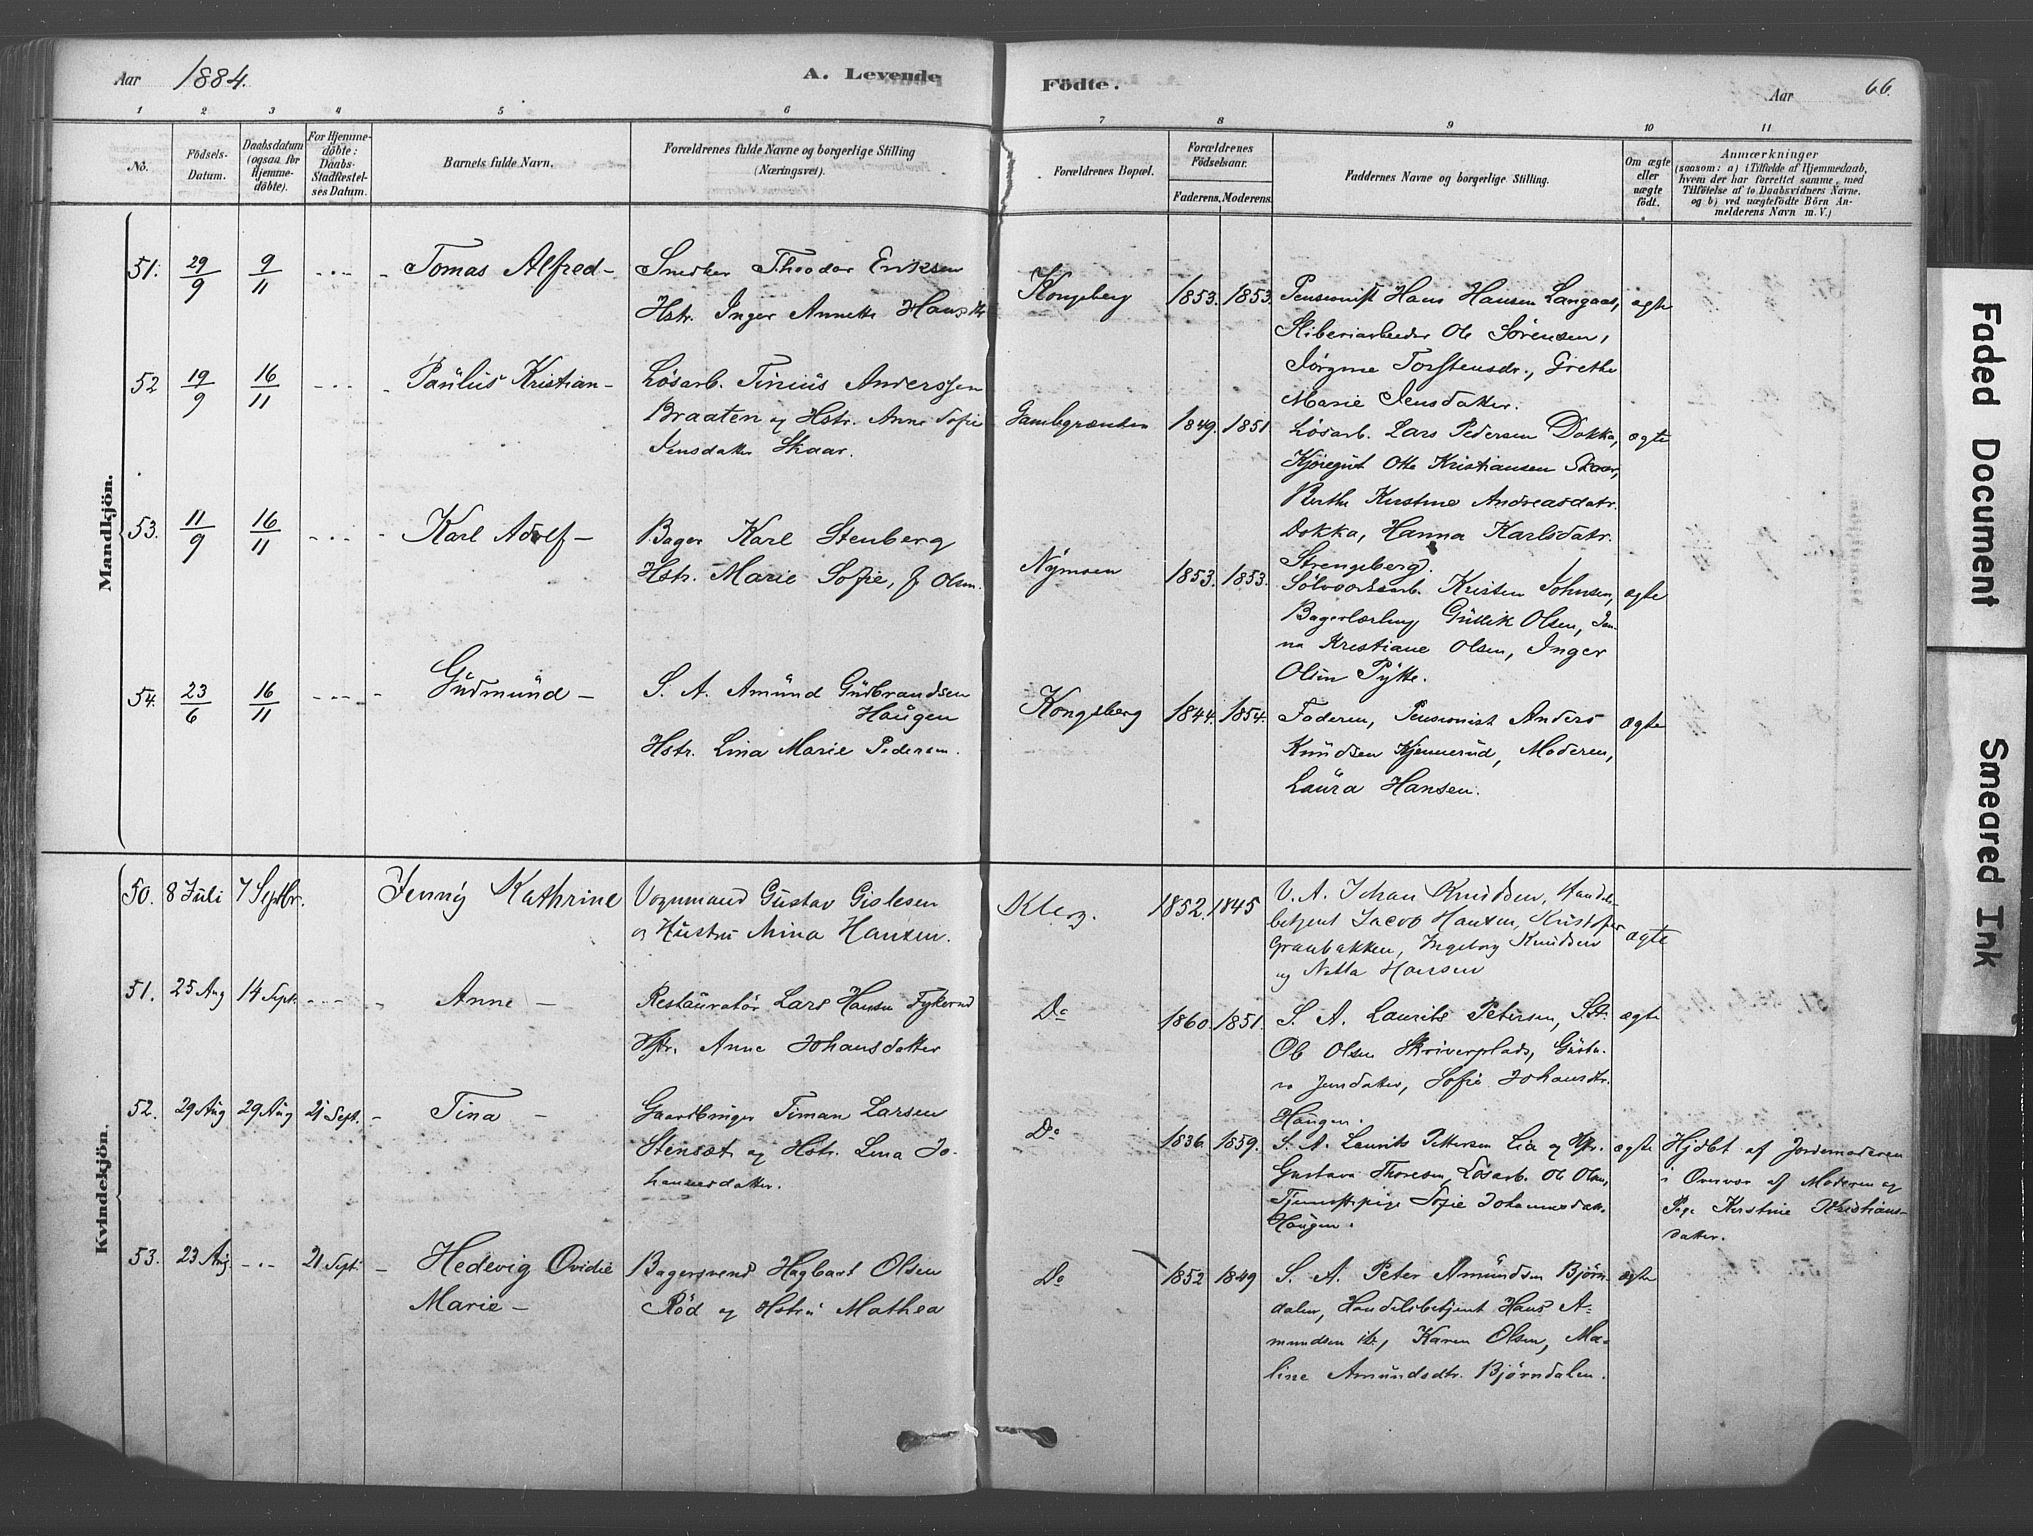 Aar 1884. A. Levende Födte. Aar 66.
1 2 3 4 5 6 7 8 9 10 11
No. Födsels-Datum. Daabsdatum (ogsaa for Hjemme-döbte). For Hjemme-döbte: Daabs-Stadfæstel-ses Datum. Barnets fulde Navn. Forældrenes fulde Navne og borgerlige Stilling (Næringsvei). Forældrenes Bopæl. Forældrenes Födselsaar. Faderens. Moderens. Faddernes Navne og borgerlige Stilling. Om ægte eller uægte födt. Anmærkninger (saasom: a) i Tilfælde af Hjemmedaab, hvem der har forrettet samme, med Tilföielse af to Daabsvidners Navne, og b) ved uægtefödte Börn An-melderens Navn m. V.)
Mandkjön.
51. 29/9 9/11 Tomas Alfred – Snedker Theodor Eriksen
Hstr. Inger Annette Hansdtr
Kongsberg 1853. 1853. Pensionist Hans Hansen Langaas, ægte
Ole Sörensen,
Jörgine Torstensdr., Grethe
Marie Jensdatter.
52 19/9 16/11 Paulus Kristian – Lösarb. Tinius Anderssen
Braaten og Hstr. Anne Sofie
Jensdatter Skaar.
Gamlegrænden 1849. 1851 Lösarb. Lars Pedersen Dokka, ægte
Kjöregut Otto Kristiansen Skaar,
Berthe Kirstine Andreasdatr.
Dokka, Hanna Karlsdatr.
Strengeberg.
53. 11/9 16/11 Karl Adolf – Bager Karl Stenberg
Hstr. Marie Sofie, f. Olsen.
Nymoen 1853. 1853. Sölvværksarb. Kristen Johnsen, ægte
Bagerlærling Gullik Olsen, Jen-
ne Kristiane Olsen, Inger
Olsen Pytte.
54. 23/6 16/11 Gudmund – S. A. Amund Gudbrandsen
Haugen
Hstr. Lina Marie Pedersen.
Kongsberg 1844. 1854. Faderen, Pensionist Anders ægte
Knudsen Kjennerud, Moderen,
Laura Hansen.
Kvindekjön.
50. 8 Juli 7 Septbr. Jenny Kathrine Vognmand Gustav Gislesen
og Hustru Mina Hansen.
Kberg. 1852. 1845 V. A. Johan Knudsen, Handels-
betjent Jacob Hansen, Kristofer
Granbakken, Ingeborg Knudsen ægte
og Netta Hansen
51. 25 Aug 14 Sept. Anne – Restauratör Lars Hansen Fykerud
Hstr. Anne Johansdatter
Do 1860. 1851. S. A. Laurits Petersen, ægte
Ole Olsen Skriverplads, Gusta-
va Jensdatter, Sofie Johansdtr.
Haugen.
52. 29 Aug 29 Aug 21 Sept. – Tina – Gaardbruger Timan Larsen
Stensæt og Hstr. Lina Jo-
hannesdatter.
Do 1836. 1859. S. A. Laurits Pettersen Lia og Hstr. ægte
Gustava Thoresen, Lösarb. Ole Olsen,
Tjenestepige Sofie Johannesdatr.
Haugen.
Hjdbt af Jordemoderen
i Overvær af Moderen og
Pige Kirstine Kristians-
datter.
53. 23 Aug 21 Sept. – Hedevig Ovidie
Marie –
Bagersvend Hagbart Olsen
Röd og Hstru Mathea
Do 1852 1849 S. A. Peter Amundsen Björn- ægte
dalen, Handelsbetjent Hans A-
mundsen ib, Karen Olsen, Ma-
line Amundsdtr. Björndalen.
Faded Document
Smeared Ink